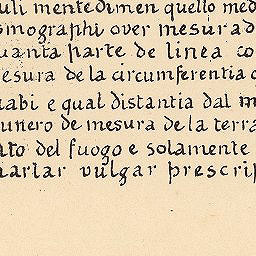 uli mente dimen quello med
smographi over mesurad
uanta parte de linea co
esura de la circumferentia d
uabi e qual distantia dal m
unero de mesura de la terra
nto del fuogo e solamente
narlar vulgar prescrip